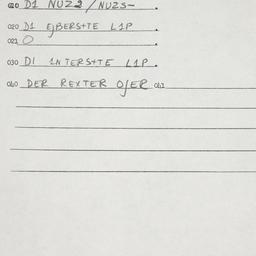 010 D1 NUZ2/NUZS-.
020 D1 EJBERSTTE L1P.
021 O
030 DI INTERSTTE L1P.
040 DER REXTER OJER 041